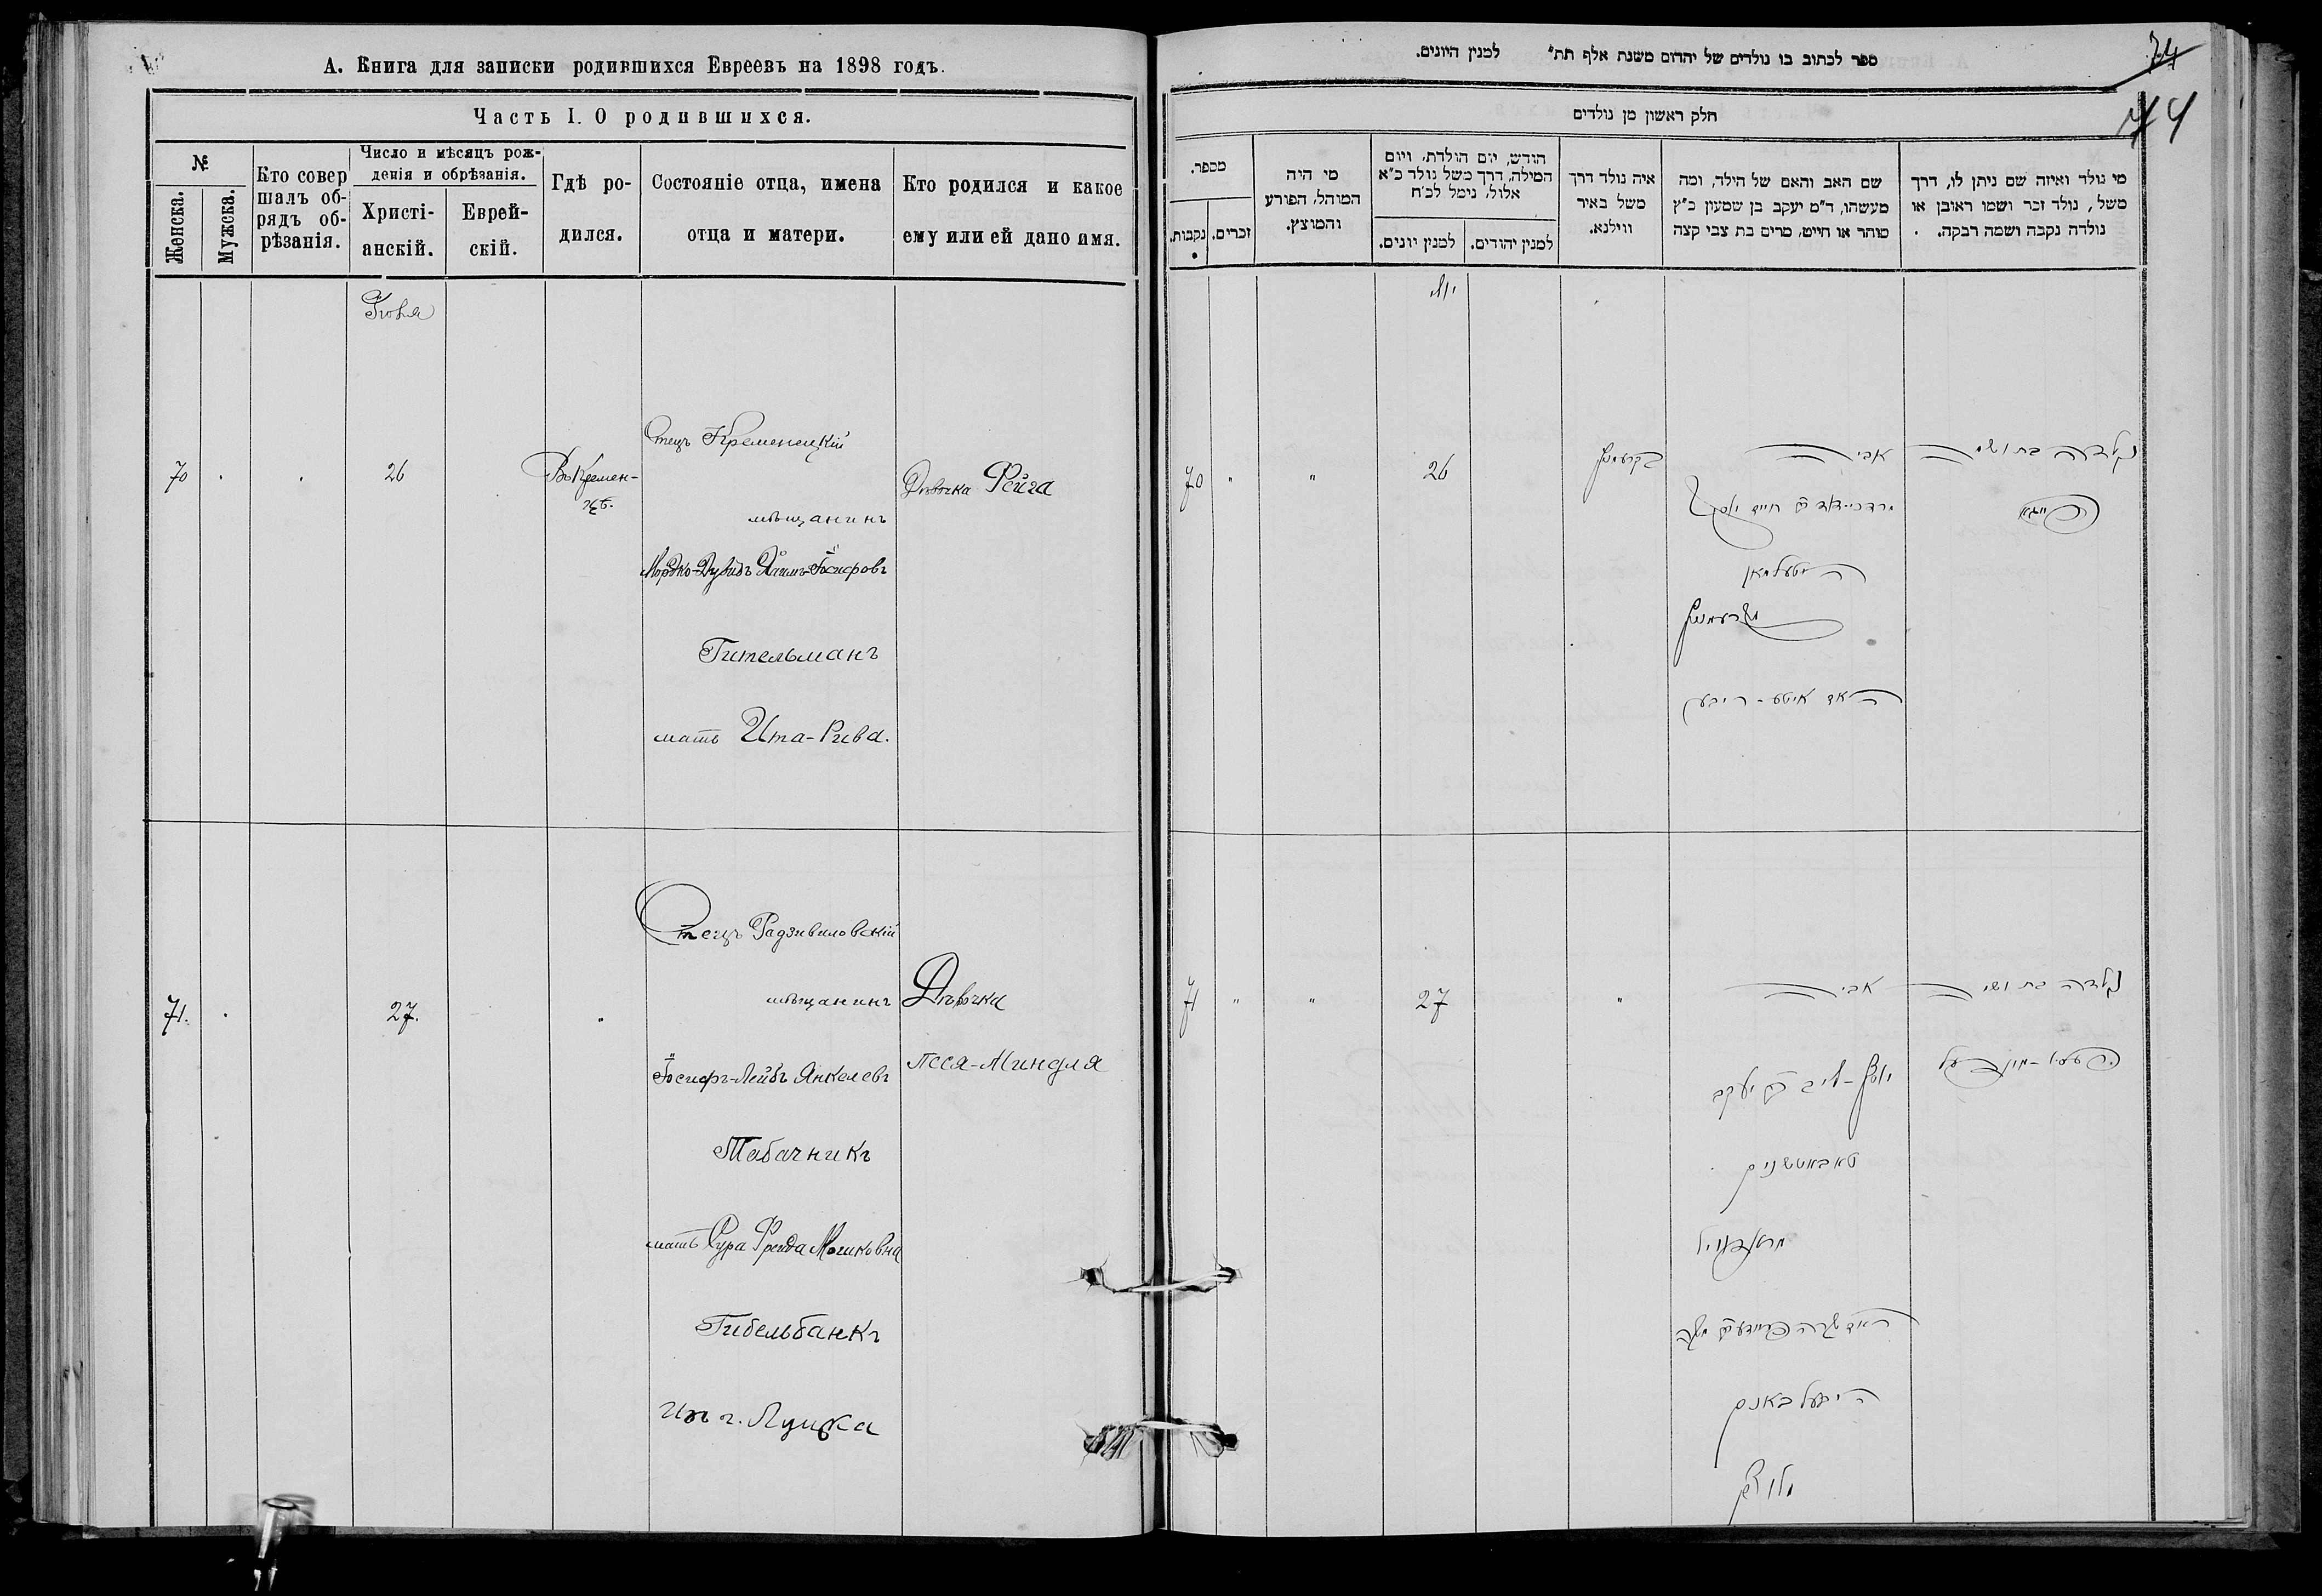 А. Книга для записки родившихся Евреевъ на 1898 годъ.
Часть I. О родившихся.
№
Женска.
Мужска.
Кто совер
шалъ об-
рядъ об-
рѣзанія.
Число и мѣсяцъ рож-
денія и обрѣзанія.
Христі-
анскій.
Еврей-
скій.
Гдѣ ро-
дился.
Состояніе отца, имена
отца и матери.
Кто родился и какое
ему или ей дано имя.
70
26
Въ Кремен-
цѣ.
Отецъ Кременецкій
мѣщанинъ
Мордко-Дувидъ Хаимъ-Іосифовъ
Гительманъ
мать Ита-Рива.
Дѣвочка Фейга
71.
27.
"
Отецъ Радзивиловскій
мѣщанинъ
Іосифъ-Лейбъ Янкелевъ
Табачникъ
мать Сура Фрейда Мошковна
Гибельбанкъ
изъ г. Луцка
Дѣвочка
Песя-Миндля
ספר לכתוב בו נולדים של יהדום משנת אלף תת" למנין היונים.
74
44
חלק ראשון מן נולדים
מספר.
נקבות.
זכרים.
מי היה
המוהל, הפורע
והמוצץ.
הודש, יום הולדת, ויום
המילה, דרך משל נולד כ"א
אלול, נימל לכ'ח
למנין יונים.
למנין יהודים.
איה נולד דרך
משל באיר
ווילנא.
שם האב והאם של הילד, ומה
מעשהו, ד"מ יעקב בן שמעון כ"ץ
סוהר או חייט, מרים בת צבי קצה
מי נולד ואיזה שם ניתן לו, דרך
משל, נולד זכר ושמו ראובן או
נולדה נקבה ושמה רבקה.
יולי
70 " " 26
בקרעמניץ
אביה
היטעלמאן
מקרעמניץ
נולדה בת ושמה
פייגא
71 " " 27 "
אביה
יוסף-ליב בן יעקב
טאבאטשניק
היבעלבאנק
מלוצק
נולדה בת ושמה